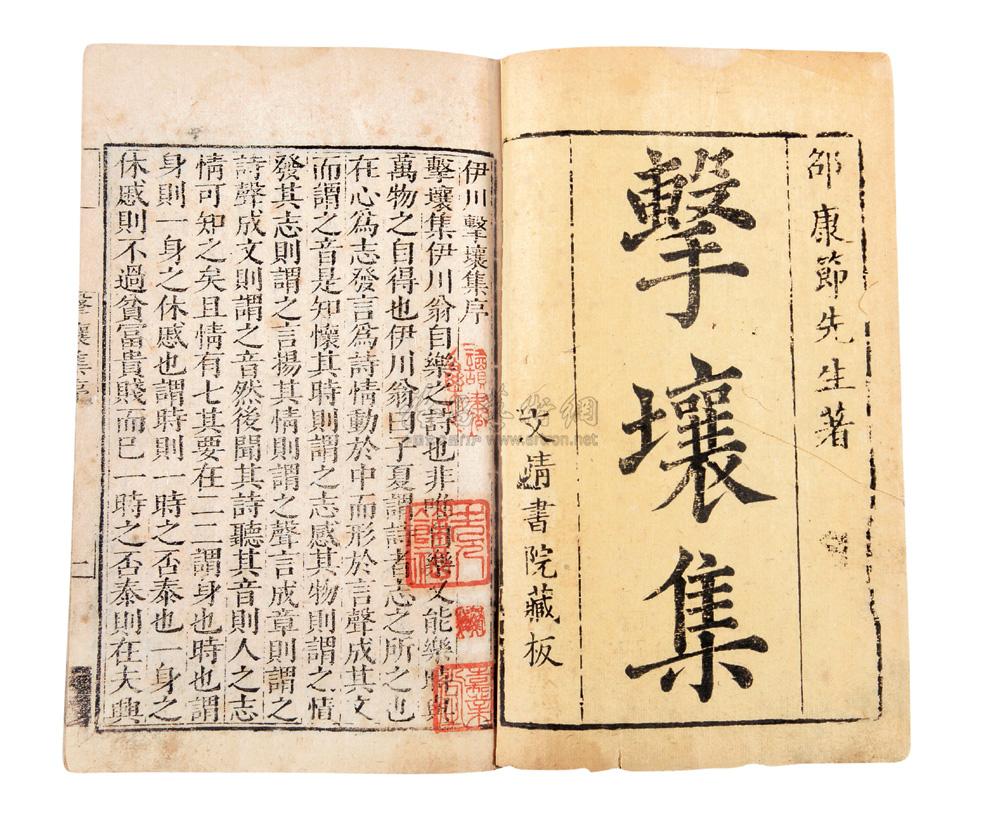 邵康節先生著
擊壤集
文靖書院藏板
伊川擊壤集序
擊壤集伊川翁自樂之詩也非唯自樂又能樂時與
萬物之自得也伊川翁曰子夏謂詩者志之所之也
在心爲志發言爲詩情動於中而形於言聲成其文
而謂之音是知懷其時則謂之志感其物則謂之情
發其志則謂之言揚其情則謂之聲言成章則謂之
詩聲成文則謂之音然後聞其詩聽其音則人之志
情可知之矣且情有七其要在二二謂身也時也謂
身則一身之休慼也謂時則一時之否泰也一身之
休慼則不過貧富貴賤而已一時之否泰則在夫興
擊壤集序
一